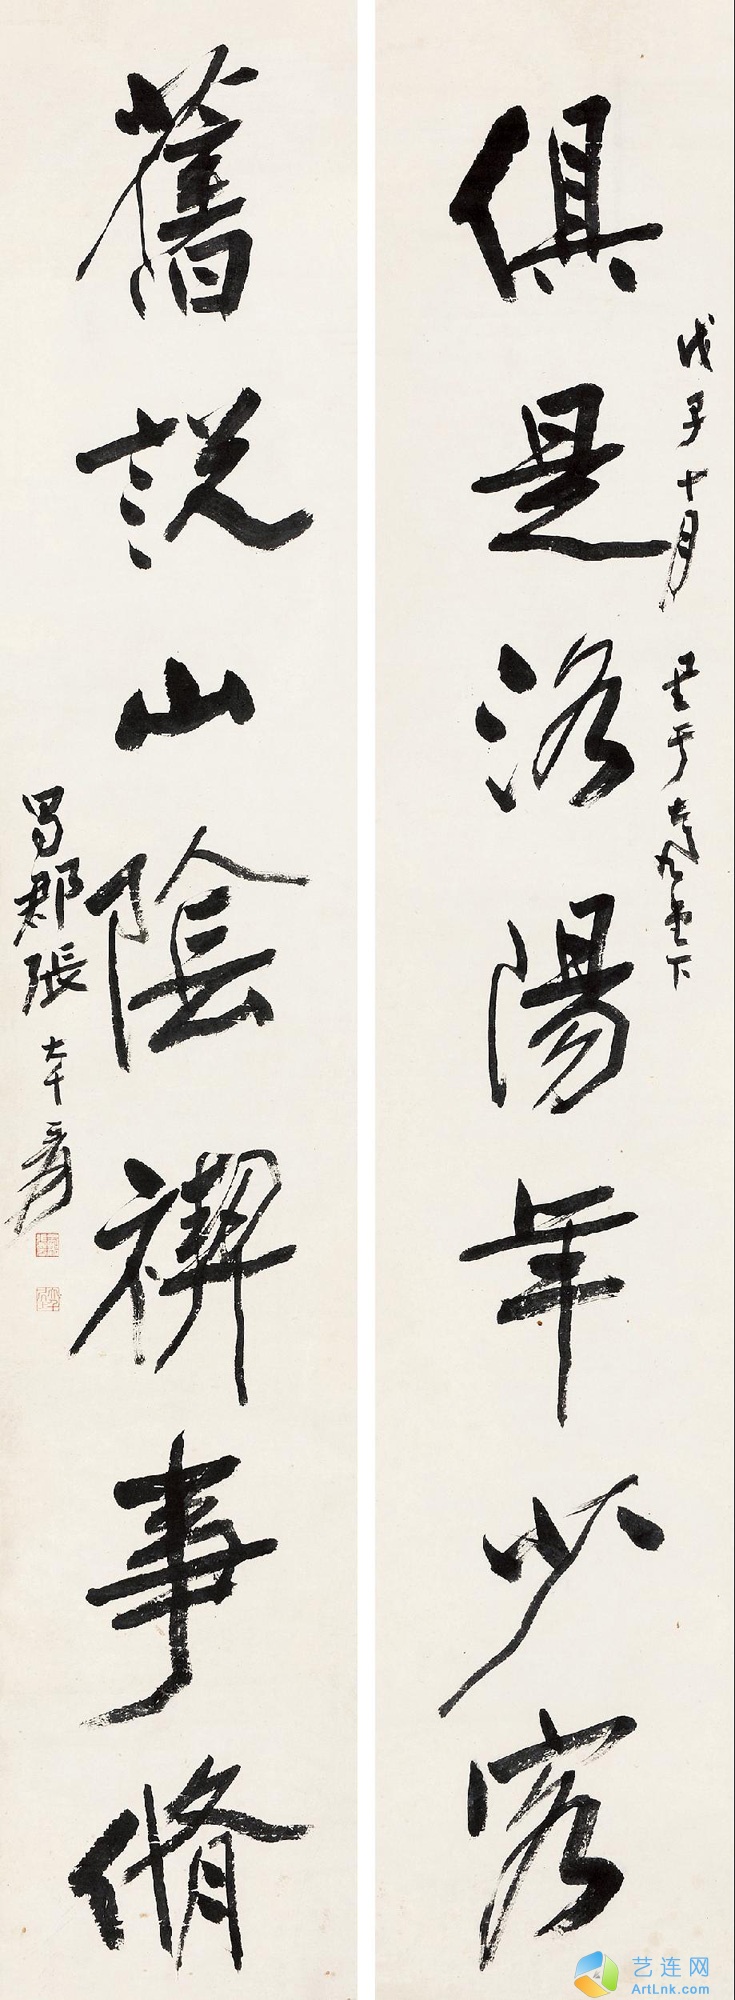 俱是洛陽年少客
戊子十月 于大風堂下
舊說山陰禊事脩
蜀郡張大千爰
艺连网
ArtLnk.com